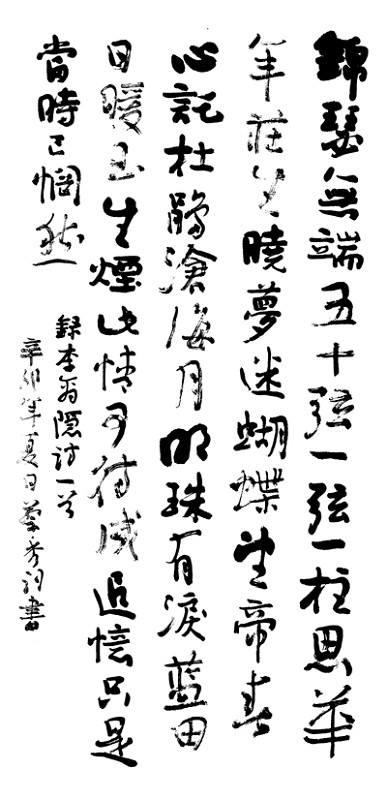 錦瑟無端五十弦一弦一柱思華
年莊生曉夢迷蝴蝶望帝春
心託杜鵑滄海月明珠有淚藍田
日暖玉生煙此情可待成追憶只是
當時已惘然
錄李商隱詩一首
辛卯年夏日蔡秀詞書